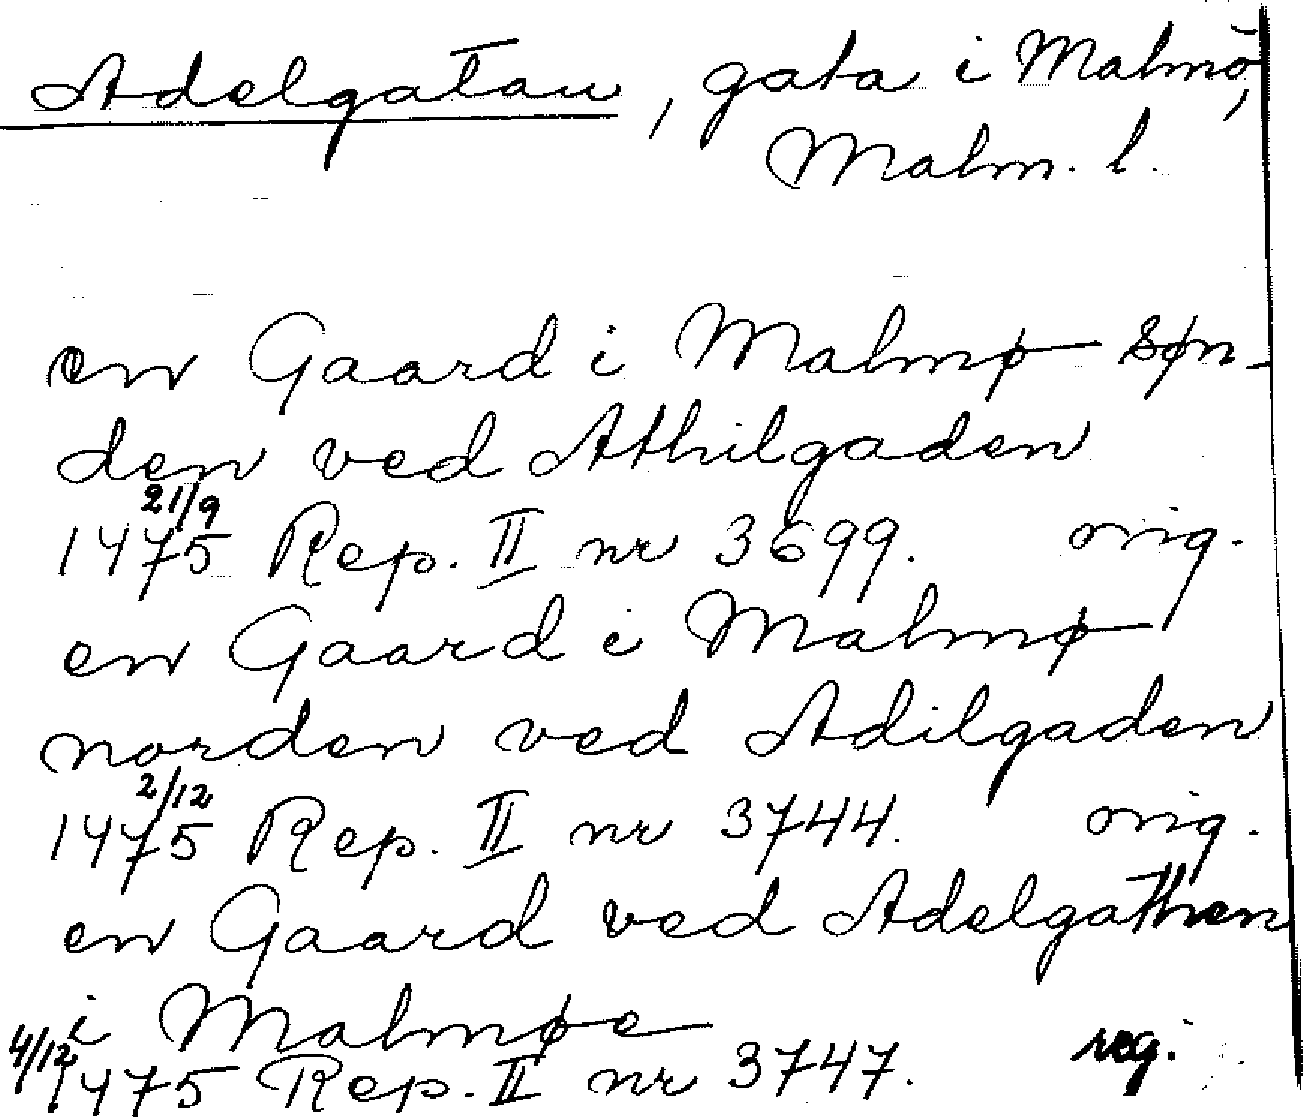 Adelgatan, gata i Malmö,
Malm. l.
en Gaard i Malmø søn-
den ved Athilgaden
21/9
1475 Rep. II nr 3699. orig.
en Gaard i Malmø
norden ved Adilgaden
2/12
1475 Rep. II nr 3744. orig.
en Gaard ved Adelgathen
i Malmøe
4/12 1475 Rep. II nr 3747. reg.